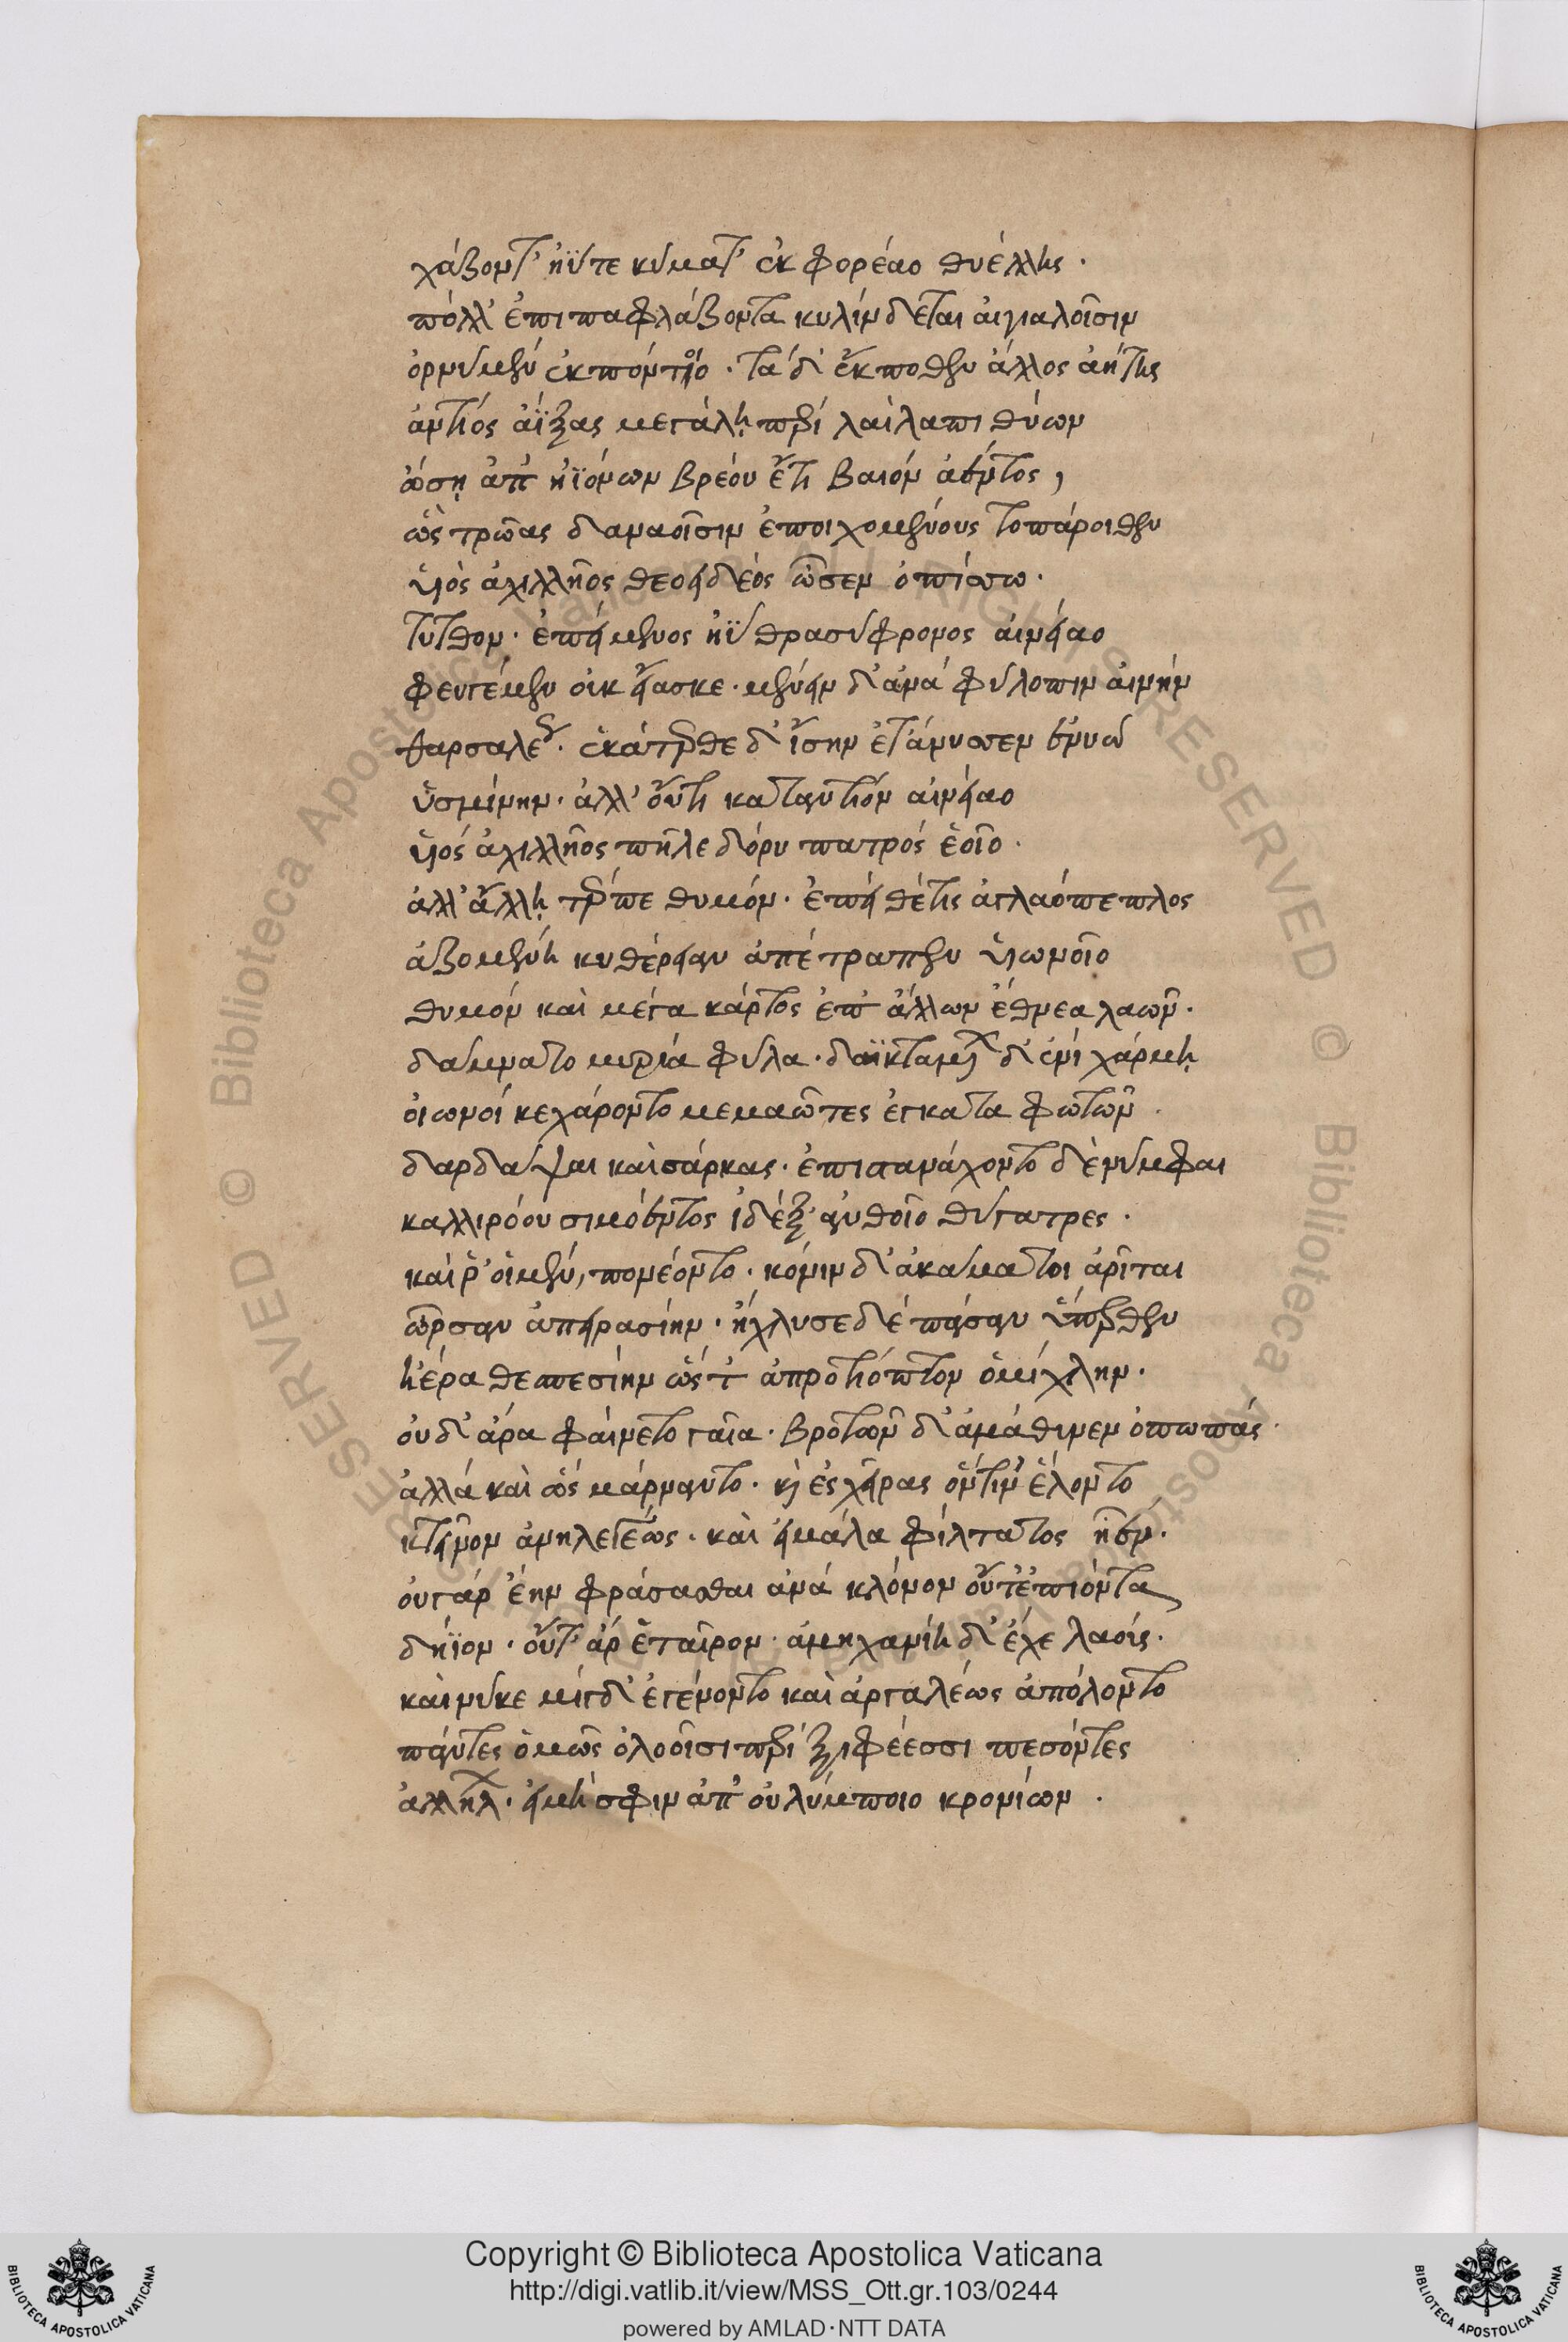 χάζοντ' ἠΰτε κύματ' ἐκ φορέαο θυέλλης·
πόλλ' ἐπιπαφλάζοντα κυλίνδεται αἰγιαλοῖσιν
ὀρνύμεν' ἐκ πόντοιο· τὰ δ' ἔκποθεν ἄλλος ἀήτης
ἀντίος ἀΐξας μεγάλη περὶ λαίλαπι θύων
ὤση ἀπ' ἠϊόνων βρέον ἔτι βαιὸν ἀέντος,
ὣς τρῶας δαναοῖσιν ἐποιχομένους τοπάροιθεν
υἱὸς ἀχιλλῆος θεοειδέος ὦσεν ὀπίσσω·
τυτθόν· ἐπεὶ μένος ἠῢ θρασύφρονος αἰνείαο
φευγέμεν οὐκ εἴασκε· μένειν δ' ἀνὰ φύλοπιν αἰνὴν
θαρσαλέως· ἑκάτερθε δ' ἴσην ἐτάνυσσεν ἐνυὼ
ὑσμίνην· ἀλλ' οὔτι καταντίον αἰνείαο
υἱὸς ἀχιλλῆος πῆλε δόρυ πατρὸς ἑοῖο·
ἀλλ' ἄλλη τρέπε θυμόν· ἐπεὶ θέτις ἀγλαόπεπλος
ἁζομένη κυθέρειαν ἀπέτραπεν υἱωνοῖο
θυμὸν καὶ μέγα κάρτος ἐπ' ἄλλων ἔθνεα λαῶν·
δάμνατο μυρία φῦλα· δαϊκταμένων δ' ἐνὶ χάρμη
οἰωνοὶ κεχάροντο μεμαῶτες ἔγκατα φωτῶν
δαρδάψαι καὶ σάρκας· ἐπιστανάχοντο δὲ νύμφαι
καλλιρόου σιμόεντος ἰδὲ ξανθοῖο θύγατρες·
καί ῥ' οἱ μέν, πονέοντο· κόνιν δ' ἀκάματοι ἀῆται
ὦρσαν ἀπειρεσίην· ἤχλυσε δὲ πᾶσαν ὕπερθεν
ἠέρα θεσπεσίην ὥς τ' ἀπροτιόπτον ὀμίχλην·
οὐδ' ἄρα φαίνετο γαῖα· βροτῶν δ' ἀμάθυνεν ὀπωπάς·
ἀλλὰ καὶ ὣς μάρναντο· καὶ ἐς χεῖρας ὅντιν' ἕλοντο
κτεῖνον ἀνηλεγέως· καὶ εἰ μάλα φίλτατος ἦεν·
οὐ γὰρ ἔην φράσασθαι ἀνὰ κλόνον οὔτ' ἐπιόντα
δήϊον· οὔτ' ἄρ ἑταῖρον· ἀμηχανίη δ' ἔχε λαούς·
καί νύ κε μίγδ' ἐγένοντο καὶ ἀργαλέως ἀπόλοντο
πάντες ὁμῶς ὀλοοῖσι περὶ ξιφέεσσι πεσόντες
ἀλλήλων· εἰ μή σφιν ἀπ' οὐλύμποιο κρονίων·
© Biblioteca Apostolica Vaticana. ALL RIGHTS RESERVED
Copyright © Biblioteca Apostolica Vaticana
http://digi.vatlib.it/view/MSS_Ott.gr.103/0244
powered by AMLAD·NTT DATA
BIBLIOTECA APOSTOLICA VATICANA
BIBLIOTECA APOSTOLICA VATICANA